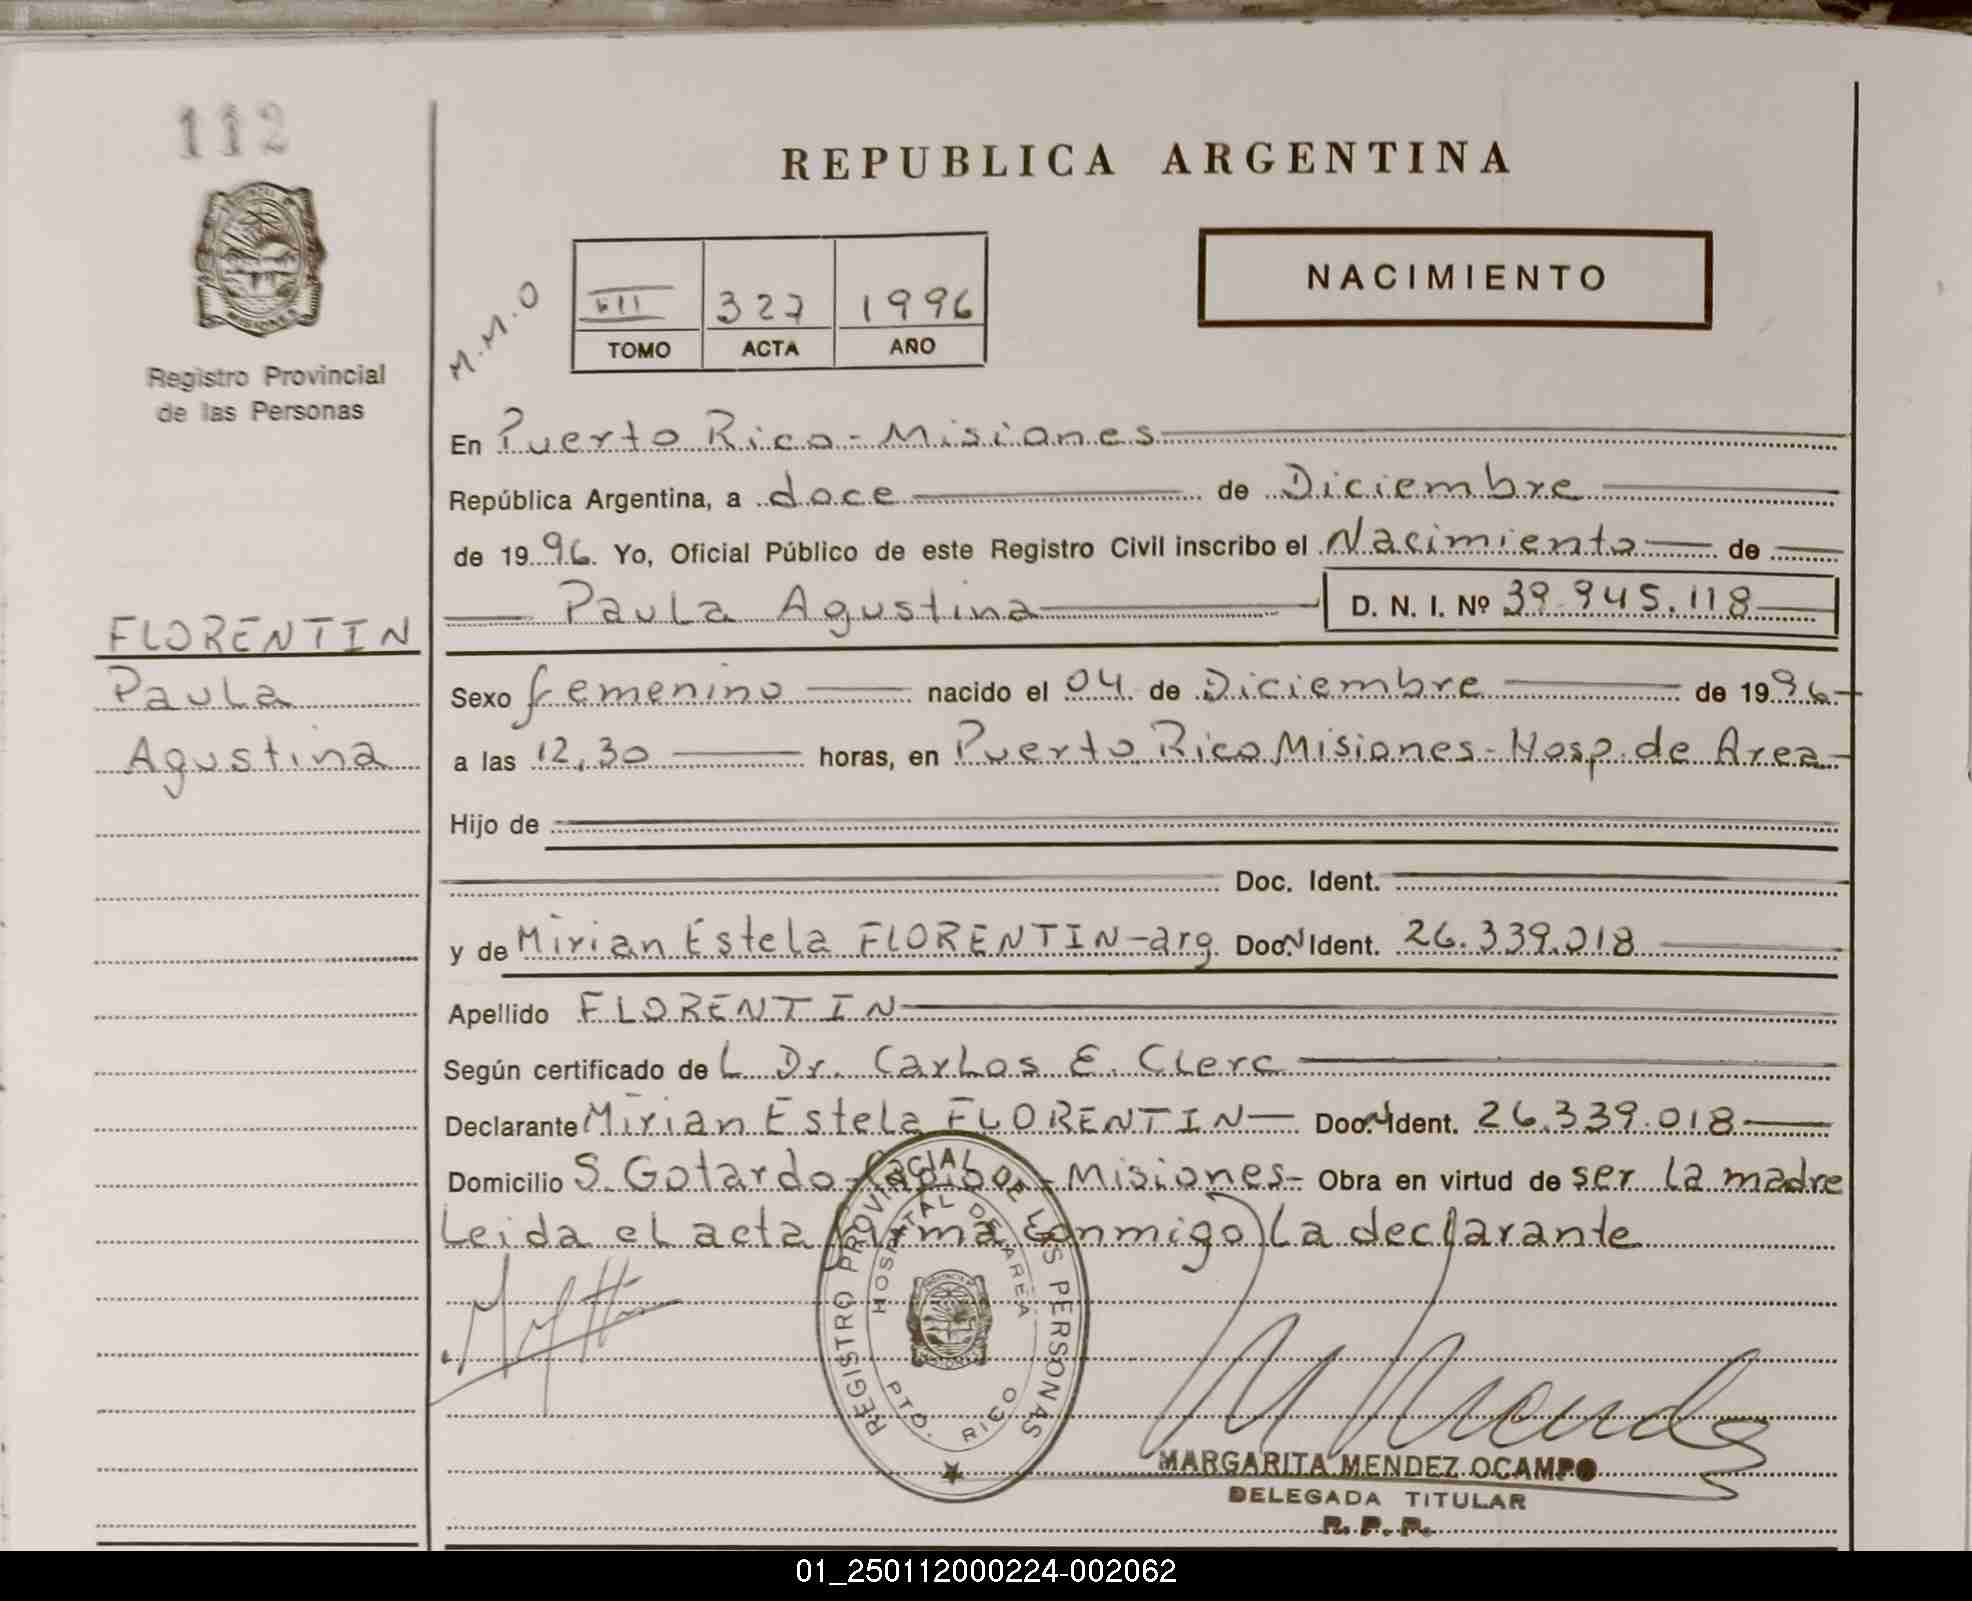 112
REPUBLICA ARGENTINA
NACIMIENTO
M.M.O
III 327 1996
TOMO ACTA AÑO
Registro Provincial
de las Personas
En Puerto Rico - Misiones
República Argentina, a doce de Diciembre
de 1996. Yo, Oficial Público de este Registro Civil inscribo el Nacimiento de
Paula Agustina D. N. I. Nº 39.945.118
FLORENTIN
Paula
Agustina
Sexo femenino nacido el 04 de Diciembre de 1996
a las 12,30 horas, en Puerto Rico Misiones - Hosp. de Area
Hijo de
Doc. Ident.
y de Mirian Estela FLORENTIN - arg. Doc. N Ident. 26.339.018
Apellido FLORENTIN
Según certificado de L Dr. Carlos E. Clerc
Declarante Mirian Estela FLORENTIN Doc. N Ident. 26.339.018
Domicilio S. Gotardo - Capiovi - Misiones - Obra en virtud de ser la madre
Leida el acta firma conmigo la declarante
REGISTRO PROVINCIAL DE LAS PERSONAS
HOSPITAL DE AREA
PTO. RICO
MISIONES
MARGARITA MENDEZ OCAMPO
DELEGADA TITULAR
R. P. P.
01_250112000224-002062